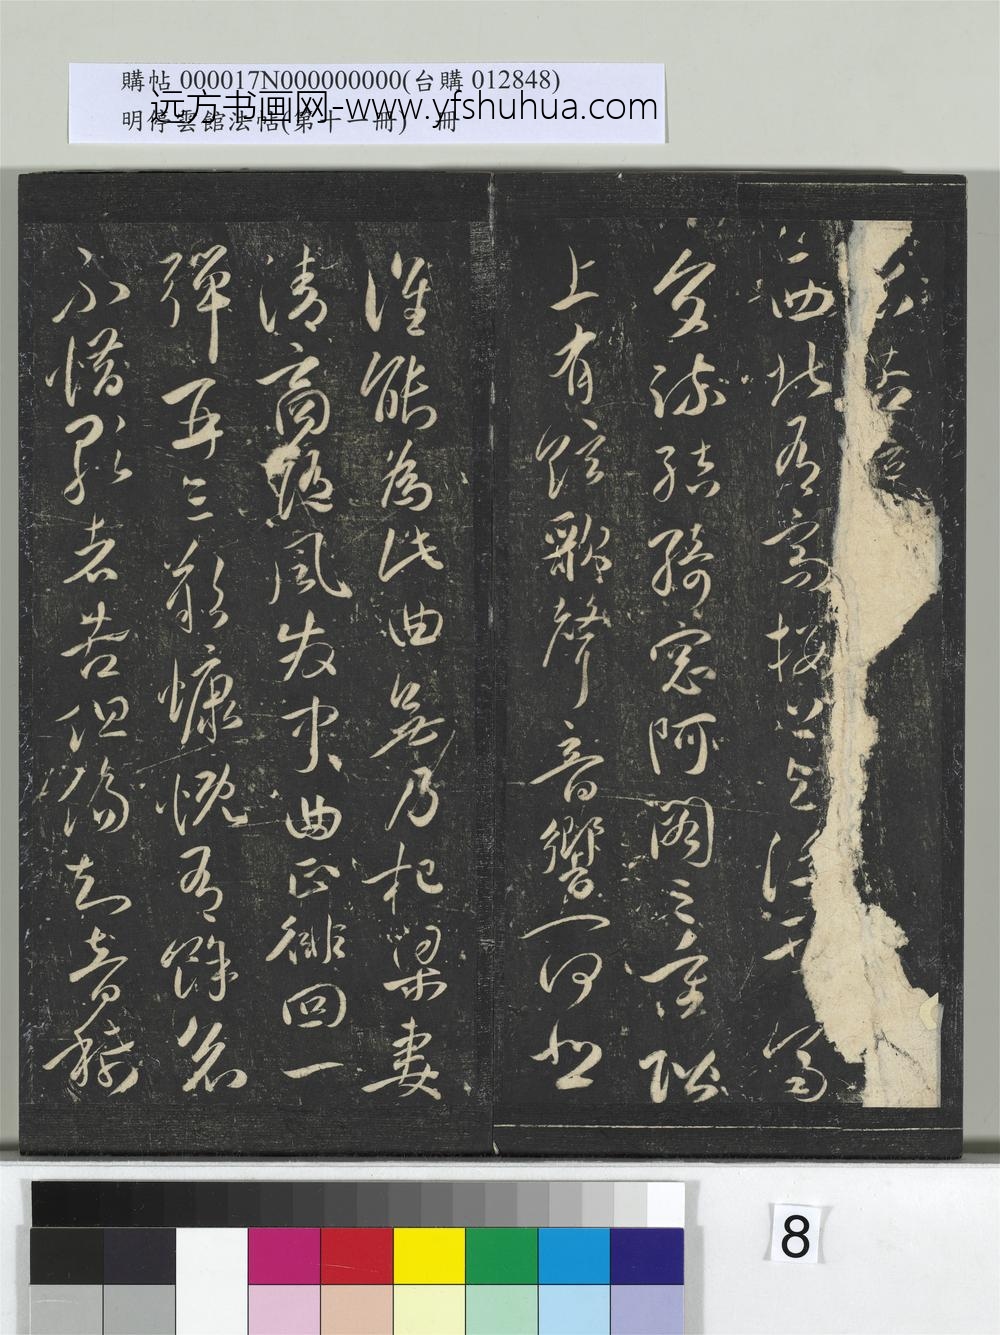 購帖 000017N000000000(台購 012848)
明停雲館法帖(第十一冊) 冊
远方书画网-www.yfshuhua.com
西北有高樓上與浮雲齊
交疏結綺窓阿閣三重階
上有弦歌聲音響一何悲
誰能為此曲無乃杞梁妻
清商隨風發中曲正徘回一
彈再三歎慷慨有餘哀
不惜歌者苦但傷知音稀
8